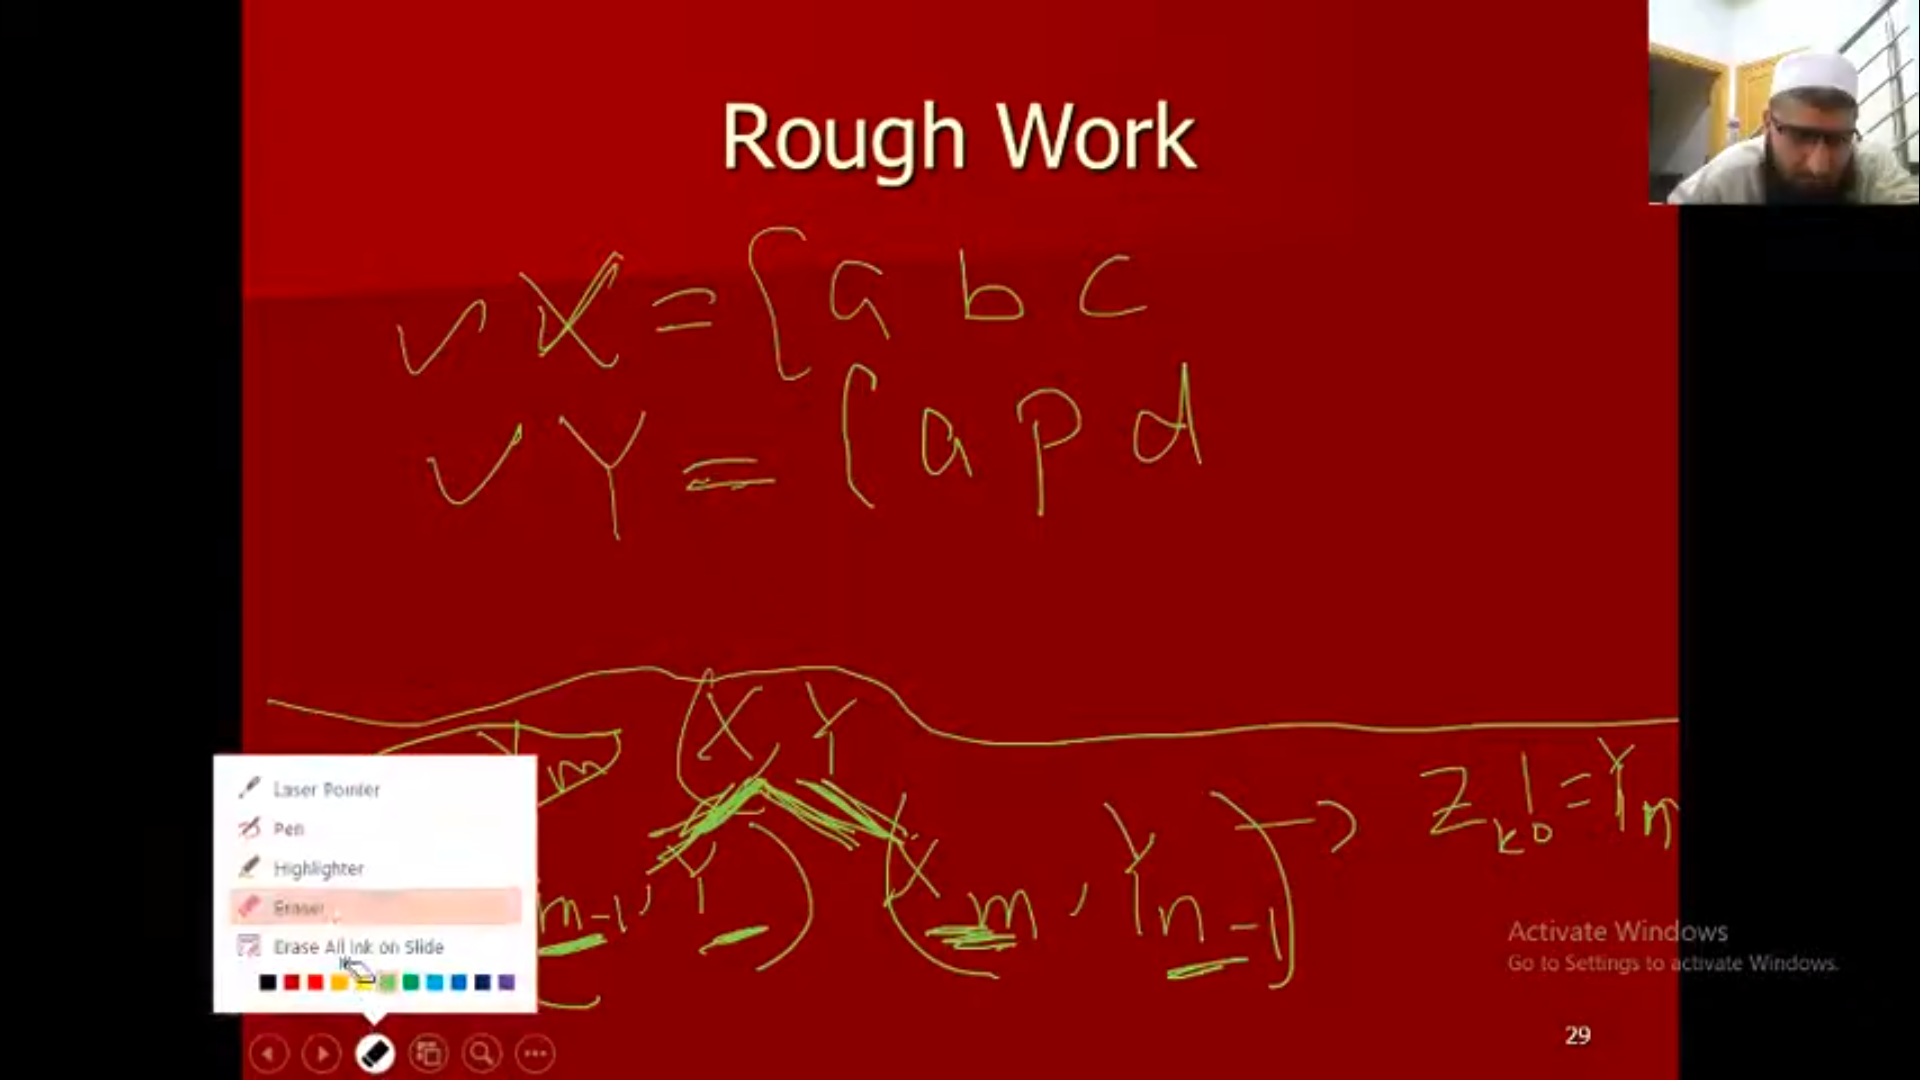 Rough Work
✓ X = { a b c
✓ Y = { a p d
X Y
m
Z k != Yn
m-1, Y
(Xm, Yn-1) →
Laser Pointer
Pen
Highlighter
Eraser
Erase All Ink on Slide
Activate Windows
Go to Settings to activate Windows.
29